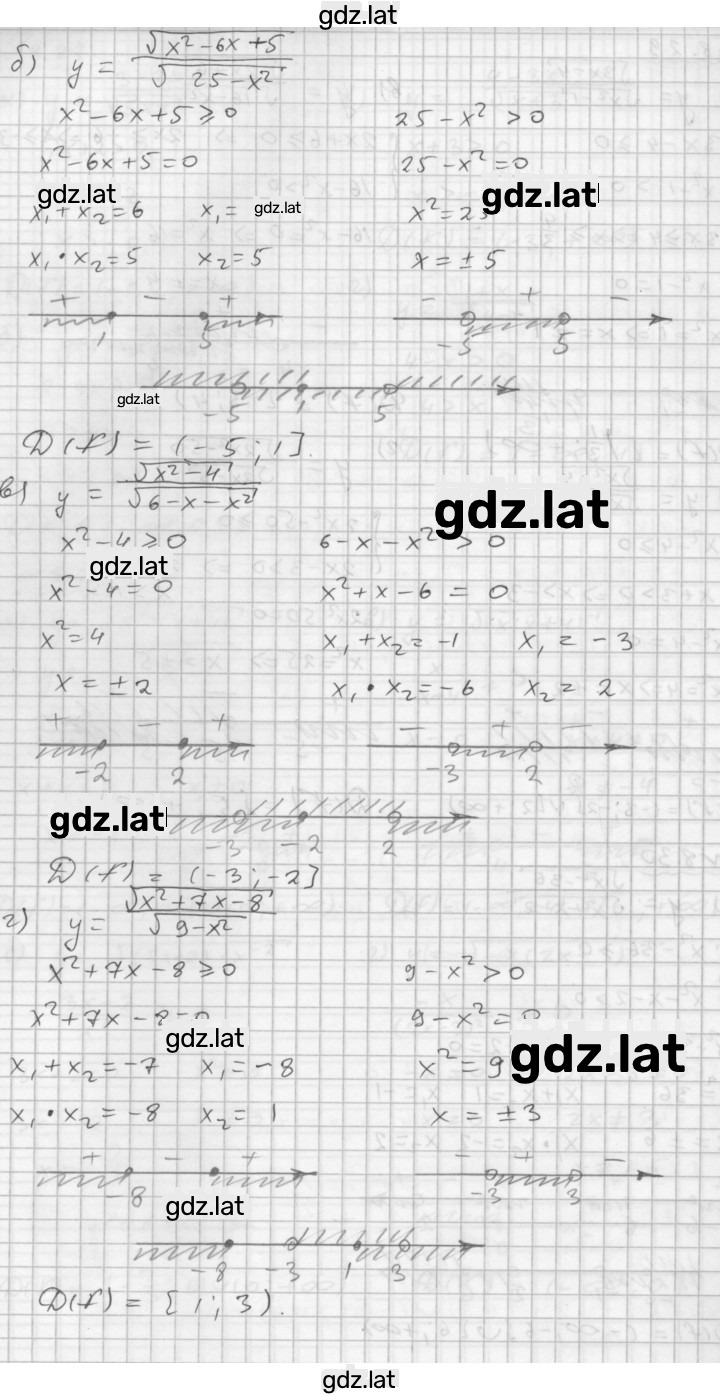 gdz.lat
б) y = √(x² – 6x + 5) / √(25 – x²)
x² – 6x + 5 ≥ 0    25 – x² > 0
x² – 6x + 5 = 0    25 – x² = 0
gdz.lat    gdz.lat
x₁ + x₂ = 6    x₁ =    gdz.lat    x² = 25
x₁ · x₂ = 5    x₂ = 5    x = ± 5
+ – +    – + –
1    5    –5    5
gdz.lat
–5    1    5
D(f) = (–5; 1].
в) y = √(x² – 4) / √(6 – x – x²)
gdz.lat
x² – 4 ≥ 0    6 – x – x² > 0
gdz.lat
x² – 4 = 0    x² + x – 6 = 0
x² = 4    x₁ + x₂ = –1    x₁ = –3
x = ± 2    x₁ · x₂ = –6    x₂ = 2
+ – +    – + –
–2    2    –3    2
gdz.lat
–3    –2    2
D(f) = (–3; –2]
г) y = √(x² + 7x – 8) / √(9 – x²)
x² + 7x – 8 ≥ 0    9 – x² > 0
x² + 7x – 8 = 0    9 – x² = 0
gdz.lat    gdz.lat
x₁ + x₂ = –7    x₁ = –8    x² = 9
x₁ · x₂ = –8    x₂ = 1    x = ± 3
+ – +    – + –
–8    –3    3
gdz.lat
–8    –3    1    3
D(f) = [1; 3).
gdz.lat